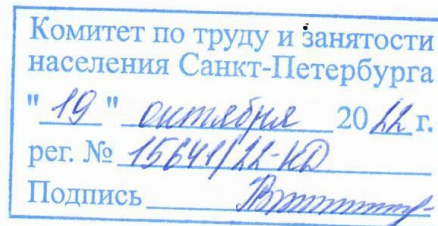 Комитет по труду и занятости
населения Санкт-Петербурга
"19" октября 2022 г.
рег. № 15641/22-КД
Подпись